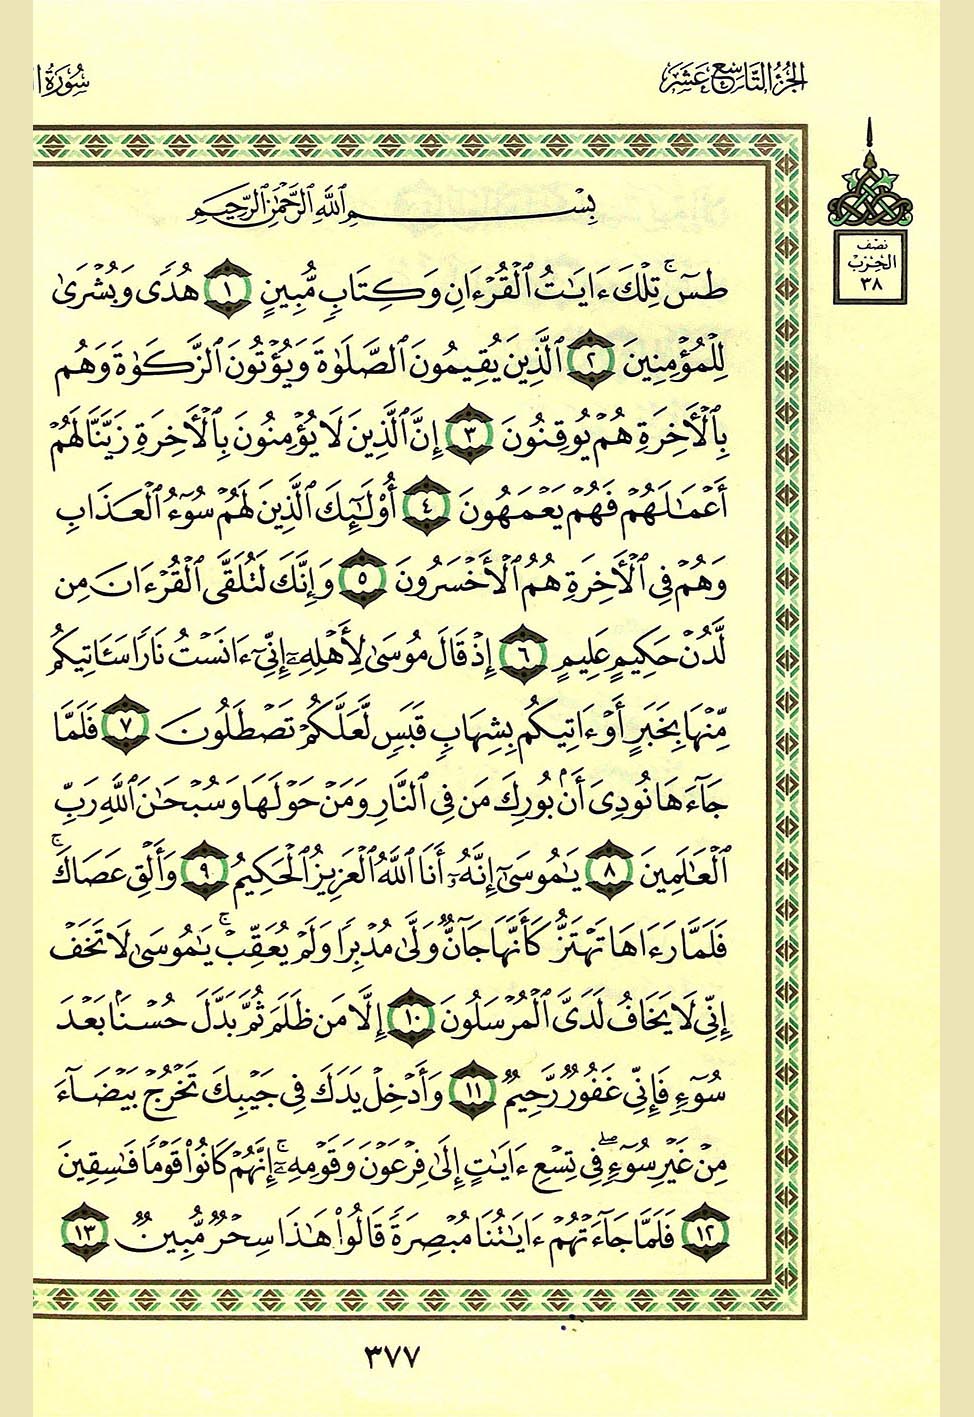 الجزء التاسع عشر
سورة
بِسْمِ ٱللَّهِ ٱلرَّحْمَٰنِ ٱلرَّحِيمِ
نصف
الحزب
٣٨
طسٓ ۚ تِلْكَ ءَايَٰتُ ٱلْقُرْءَانِ وَكِتَابٍ مُّبِينٍ ١ هُدًى وَبُشْرَىٰ
لِلْمُؤْمِنِينَ ٢ ٱلَّذِينَ يُقِيمُونَ ٱلصَّلَوٰةَ وَيُؤْتُونَ ٱلزَّكَوٰةَ وَهُم
بِٱلْأَخِرَةِ هُمْ يُوقِنُونَ ٣ إِنَّ ٱلَّذِينَ لَا يُؤْمِنُونَ بِٱلْأَخِرَةِ زَيَّنَّا لَهُمْ
أَعْمَٰلَهُمْ فَهُمْ يَعْمَهُونَ ٤ أُو۟لَٰٓئِكَ ٱلَّذِينَ لَهُمْ سُوٓءُ ٱلْعَذَابِ
وَهُمْ فِى ٱلْأَخِرَةِ هُمُ ٱلْأَخْسَرُونَ ٥ وَإِنَّكَ لَتُلَقَّى ٱلْقُرْءَانَ مِن
لَّدُنْ حَكِيمٍ عَلِيمٍ ٦ إِذْ قَالَ مُوسَىٰ لِأَهْلِهِۦٓ إِنِّىٓ ءَانَسْتُ نَارًا سَـَٔاتِيكُم
مِّنْهَا بِخَبَرٍ أَوْ ءَاتِيكُم بِشِهَابٍ قَبَسٍ لَّعَلَّكُمْ تَصْطَلُونَ ٧ فَلَمَّا
جَآءَهَا نُودِىَ أَنۢ بُورِكَ مَن فِى ٱلنَّارِ وَمَنْ حَوْلَهَا وَسُبْحَٰنَ ٱللَّهِ رَبِّ
ٱلْعَٰلَمِينَ ٨ يَٰمُوسَىٰٓ إِنَّهُۥٓ أَنَا ٱللَّهُ ٱلْعَزِيزُ ٱلْحَكِيمُ ٩ وَأَلْقِ عَصَاكَ ۚ
فَلَمَّا رَءَاهَا تَهْتَزُّ كَأَنَّهَا جَآنٌّ وَلَّىٰ مُدْبِرًا وَلَمْ يُعَقِّبْ ۚ يَٰمُوسَىٰ لَا تَخَفْ
إِنِّى لَا يَخَافُ لَدَىَّ ٱلْمُرْسَلُونَ ١٠ إِلَّا مَن ظَلَمَ ثُمَّ بَدَّلَ حُسْنًۢا بَعْدَ
سُوٓءٍ فَإِنِّى غَفُورٌ رَّحِيمٌ ١١ وَأَدْخِلْ يَدَكَ فِى جَيْبِكَ تَخْرُجْ بَيْضَآءَ
مِنْ غَيْرِ سُوٓءٍ ۖ فِى تِسْعِ ءَايَٰتٍ إِلَىٰ فِرْعَوْنَ وَقَوْمِهِۦٓ ۚ إِنَّهُمْ كَانُوا۟ قَوْمًا فَٰسِقِينَ
١٢ فَلَمَّا جَآءَتْهُمْ ءَايَٰتُنَا مُبْصِرَةً قَالُوا۟ هَٰذَا سِحْرٌ مُّبِينٌ ١٣
٣٧٧